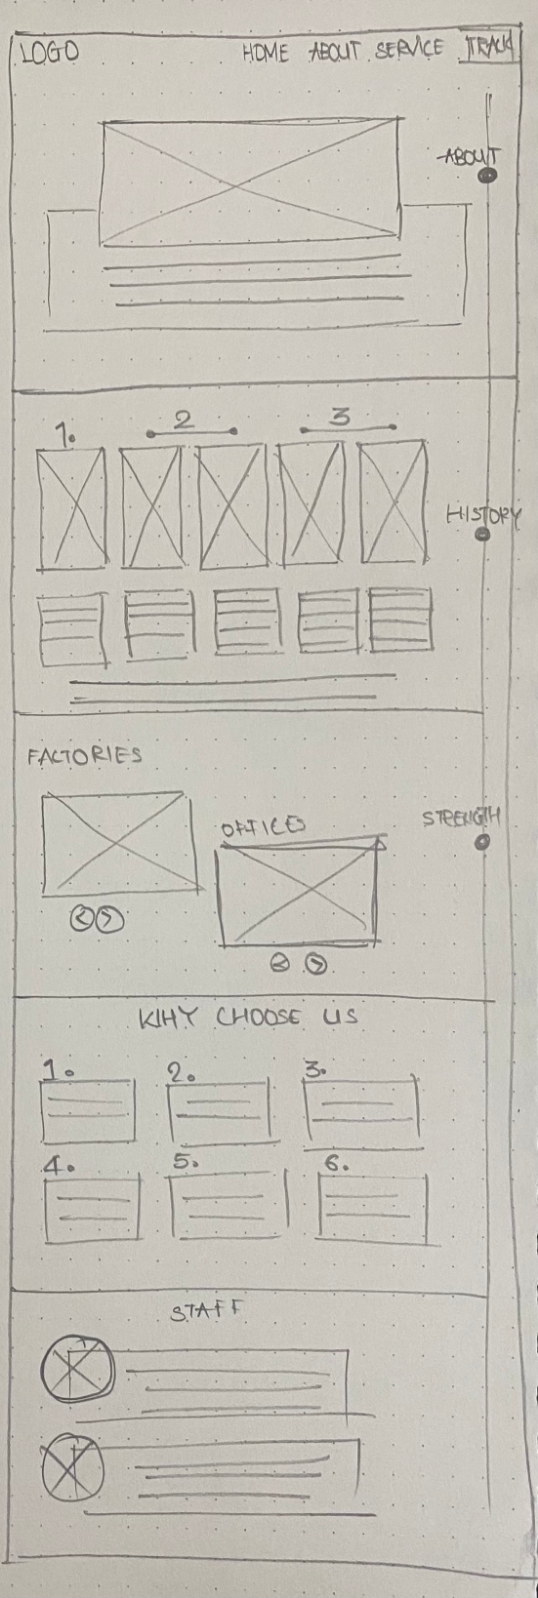 LOGO HOME ABOUT SERVICE TRACK
ABOUT
1. 2 3
HISTORY
FACTORIES
OFFICES
STRENGTH
WHY CHOOSE US
1. 2. 3.
4. 5. 6.
STAFF